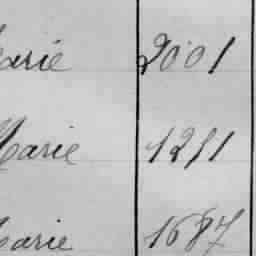 Marie 2001
Marie 1211
Marie 1687